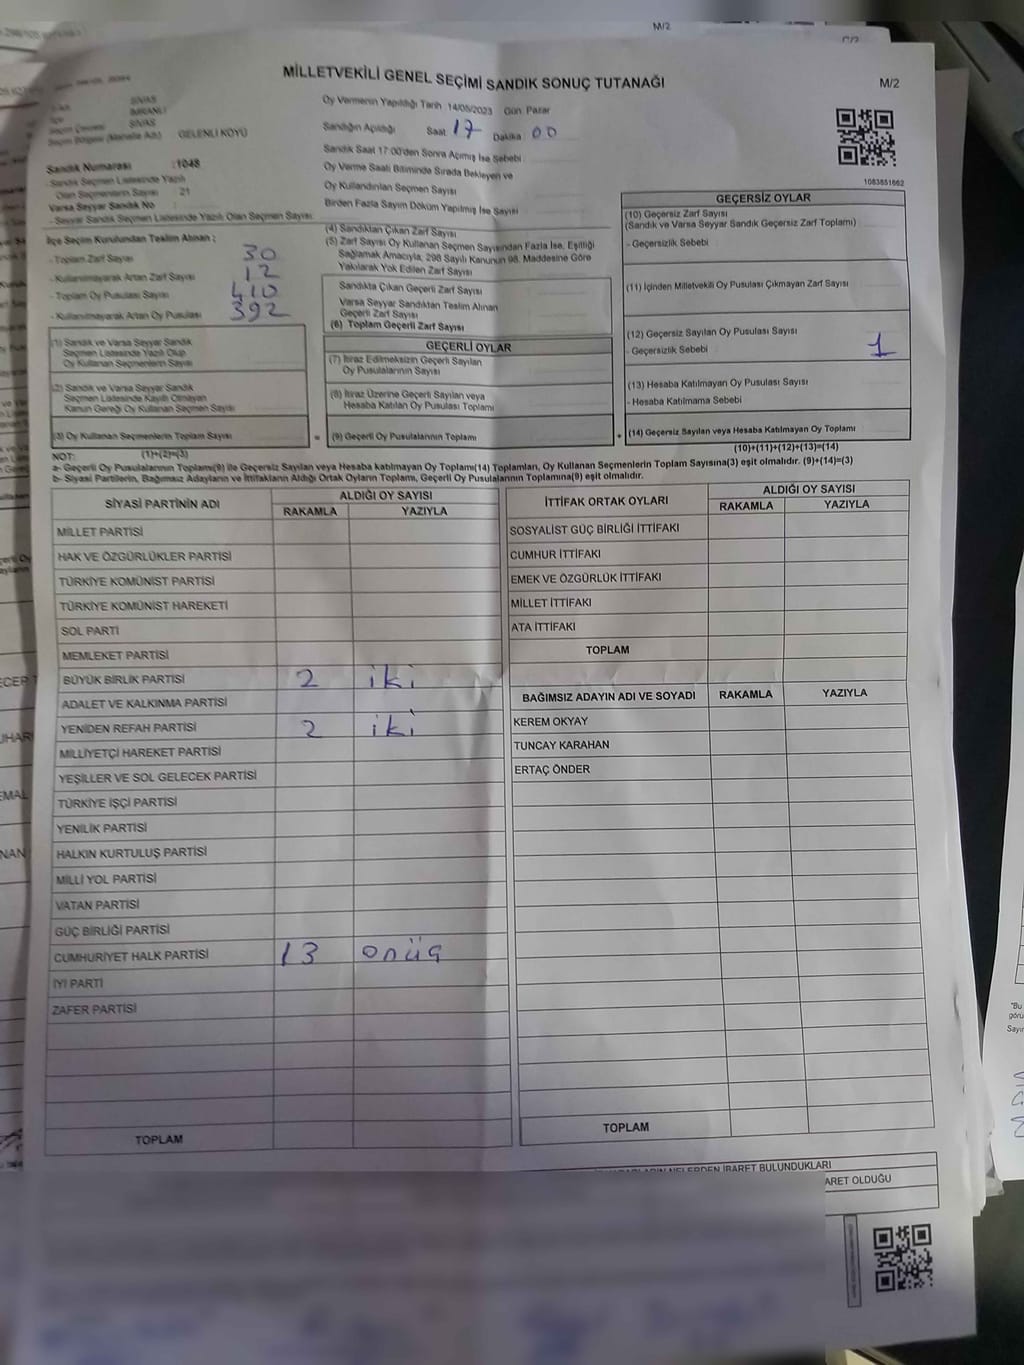 M/2
MİLLETVEKİLİ GENEL SEÇİMİ SANDIK SONUÇ TUTANAĞI
M/2
SİVAS
İMRANLI
SİVAS
Seçim Bölgesi (Mahalle Adı) GELENLİ KÖYÜ
Sandık Numarası :1048
- Sandık Seçmen Listesinde Yazılı
Olan Seçmenlerin Sayısı 21
Varsa Seyyar Sandık No
- Seyyar Sandık Seçmen Listesinde Yazılı Olan Seçmen Sayısı
İlçe Seçim Kurulundan Teslim Alınan ;
- Toplam Zarf Sayısı 30
- Kullanılmayarak Artan Zarf Sayısı 12
- Toplam Oy Pusulası Sayısı 410
- Kullanılmayarak Artan Oy Pusulası 392
(1) Sandık ve Varsa Seyyar Sandık
Seçmen Listesinde Yazılı Olup
Oy Kullanan Seçmenlerin Sayısı
(2) Sandık ve Varsa Seyyar Sandık
Seçmen Listesinde Kayıtlı Olmayan
Kanun Gereği Oy Kullanan Seçmen Sayısı
(3) Oy Kullanan Seçmenlerin Toplam Sayısı
(1)+(2)=(3)
Oy Vermenin Yapıldığı Tarih 14/05/2023 Gün Pazar
Sandığın Açıldığı Saat 17 Dakika 00
Sandık Saat 17:00'den Sonra Açılmış İse Sebebi
Oy Verme Saati Bitiminde Sırada Bekleyen ve
Oy Kullandırılan Seçmen Sayısı
Birden Fazla Sayım Döküm Yapılmış İse Sayısı
(4) Sandıktan Çıkan Zarf Sayısı
(5) Zarf Sayısı Oy Kullanan Seçmen Sayısından Fazla İse, Eşitliği
Sağlamak Amacıyla, 298 Sayılı Kanunun 98. Maddesine Göre
Yakılarak Yok Edilen Zarf Sayısı
Sandıkta Çıkan Geçerli Zarf Sayısı
Varsa Seyyar Sandıktan Teslim Alınan
Geçerli Zarf Sayısı
(6) Toplam Geçerli Zarf Sayısı
GEÇERLİ OYLAR
(7) İtiraz Edilmeksizin Geçerli Sayılan
Oy Pusulalarının Sayısı
(8) İtiraz Üzerine Geçerli Sayılan veya
Hesaba Katılan Oy Pusulası Toplamı
= (9) Geçerli Oy Pusulalarının Toplamı
1083851662
GEÇERSİZ OYLAR
(10) Geçersiz Zarf Sayısı
(Sandık ve Varsa Seyyar Sandık Geçersiz Zarf Toplamı)
- Geçersizlik Sebebi
(11) İçinden Milletvekili Oy Pusulası Çıkmayan Zarf Sayısı
(12) Geçersiz Sayılan Oy Pusulası Sayısı
- Geçersizlik Sebebi 1
(13) Hesaba Katılmayan Oy Pusulası Sayısı
- Hesaba Katılmama Sebebi
+ (14) Geçersiz Sayılan veya Hesaba Katılmayan Oy Toplamı
(10)+(11)+(12)+(13)=(14)
NOT:
a- Geçerli Oy Pusulalarının Toplamı(9) ile Geçersiz Sayılan veya Hesaba katılmayan Oy Toplamı(14) Toplamları, Oy Kullanan Seçmenlerin Toplam Sayısına(3) eşit olmalıdır. (9)+(14)=(3)
b- Siyasi Partilerin, Bağımsız Adayların ve İttifakların Aldığı Ortak Oyların Toplamı, Geçerli Oy Pusulalarının Toplamına(9) eşit olmalıdır.
SİYASİ PARTİNİN ADI ALDIĞI OY SAYISI
RAKAMLA YAZIYLA
MİLLET PARTİSİ
HAK VE ÖZGÜRLÜKLER PARTİSİ
TÜRKİYE KOMÜNİST PARTİSİ
TÜRKİYE KOMÜNİST HAREKETİ
SOL PARTİ
MEMLEKET PARTİSİ
BÜYÜK BİRLİK PARTİSİ 2 iki
ADALET VE KALKINMA PARTİSİ
YENİDEN REFAH PARTİSİ 2 iki
MİLLİYETÇİ HAREKET PARTİSİ
YEŞİLLER VE SOL GELECEK PARTİSİ
TÜRKİYE İŞÇİ PARTİSİ
YENİLİK PARTİSİ
HALKIN KURTULUŞ PARTİSİ
MİLLİ YOL PARTİSİ
VATAN PARTİSİ
GÜÇ BİRLİĞİ PARTİSİ
CUMHURİYET HALK PARTİSİ 13 onüç
İYİ PARTİ
ZAFER PARTİSİ
TOPLAM
İTTİFAK ORTAK OYLARI ALDIĞI OY SAYISI
RAKAMLA YAZIYLA
SOSYALİST GÜÇ BİRLİĞİ İTTİFAKI
CUMHUR İTTİFAKI
EMEK VE ÖZGÜRLÜK İTTİFAKI
MİLLET İTTİFAKI
ATA İTTİFAKI
TOPLAM
BAĞIMSIZ ADAYIN ADI VE SOYADI RAKAMLA YAZIYLA
KEREM OKYAY
TUNCAY KARAHAN
ERTAÇ ÖNDER
TOPLAM
NELERDEN İBARET BULUNDUKLARI
ARET OLDUĞU